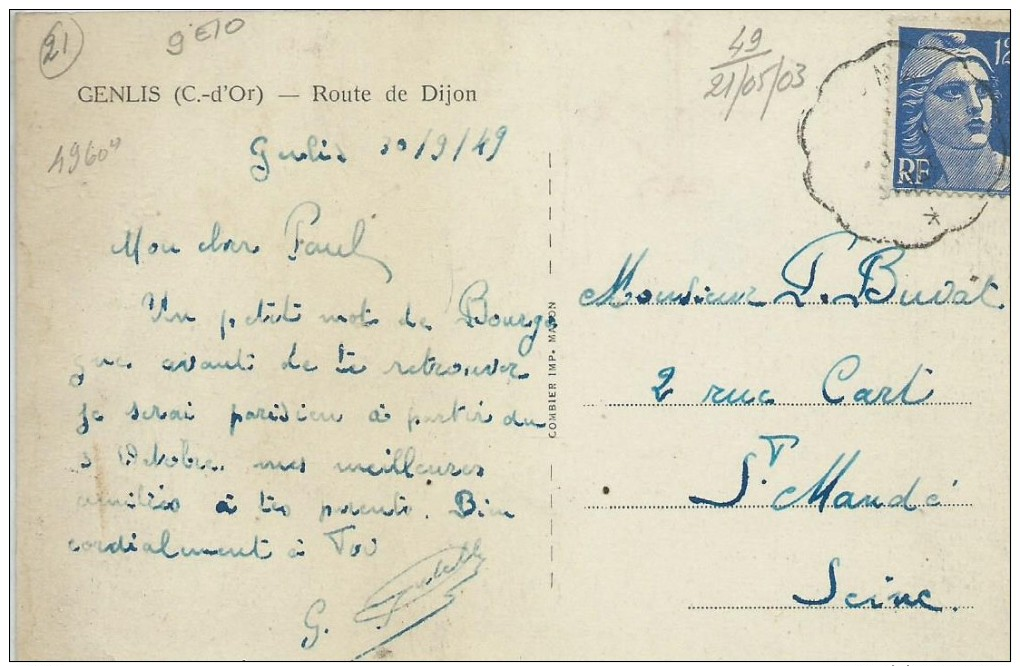 21
9€10
49
21/05/03
12
RF
GENLIS (C.-d'Or) — Route de Dijon
Genlis 30/9/49
Mon cher Paul
Un petit mot de Bourgo
gne avant de te retrouver
je serai parisien à partir du
3 Octobre. mes meilleures
amitiés à tes parents. Bien
cordialement à Toi
G.
COMBIER IMP. MACON
Monsieur P. Buvat
2 rue Cart
St Mandé
Seine.